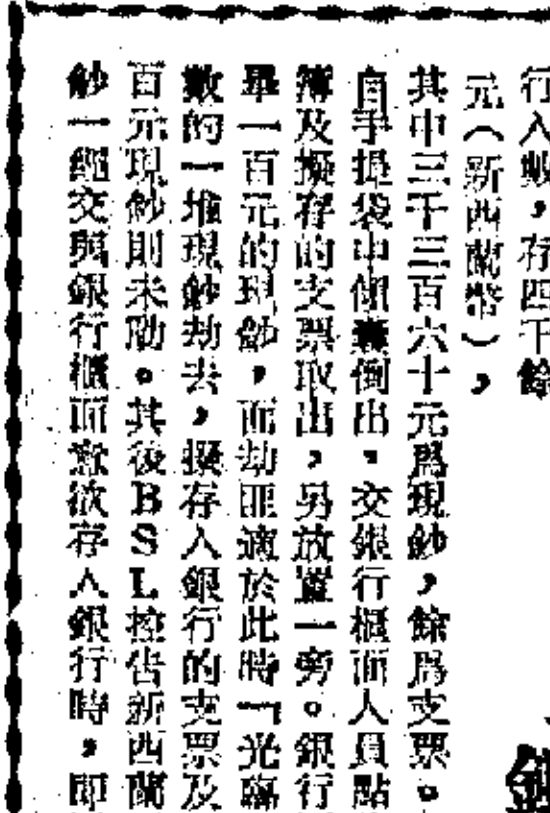 行入數,存四千餘
元(新西蘭幣),
其中三千三百六十元爲現鈔,餘爲支票。
自手提袋中傾囊倒出,交銀行櫃面人員點
簿及擬存的支票取出,另放置一旁。銀行
畢一百元的現鈔,而劫匪適於此時「光臨
數的一堆現鈔劫去,擬存入銀行的支票及
百元現鈔則未動。其後BSL控告新西蘭
鈔一經交與銀行櫃面意欲存入銀行時,即